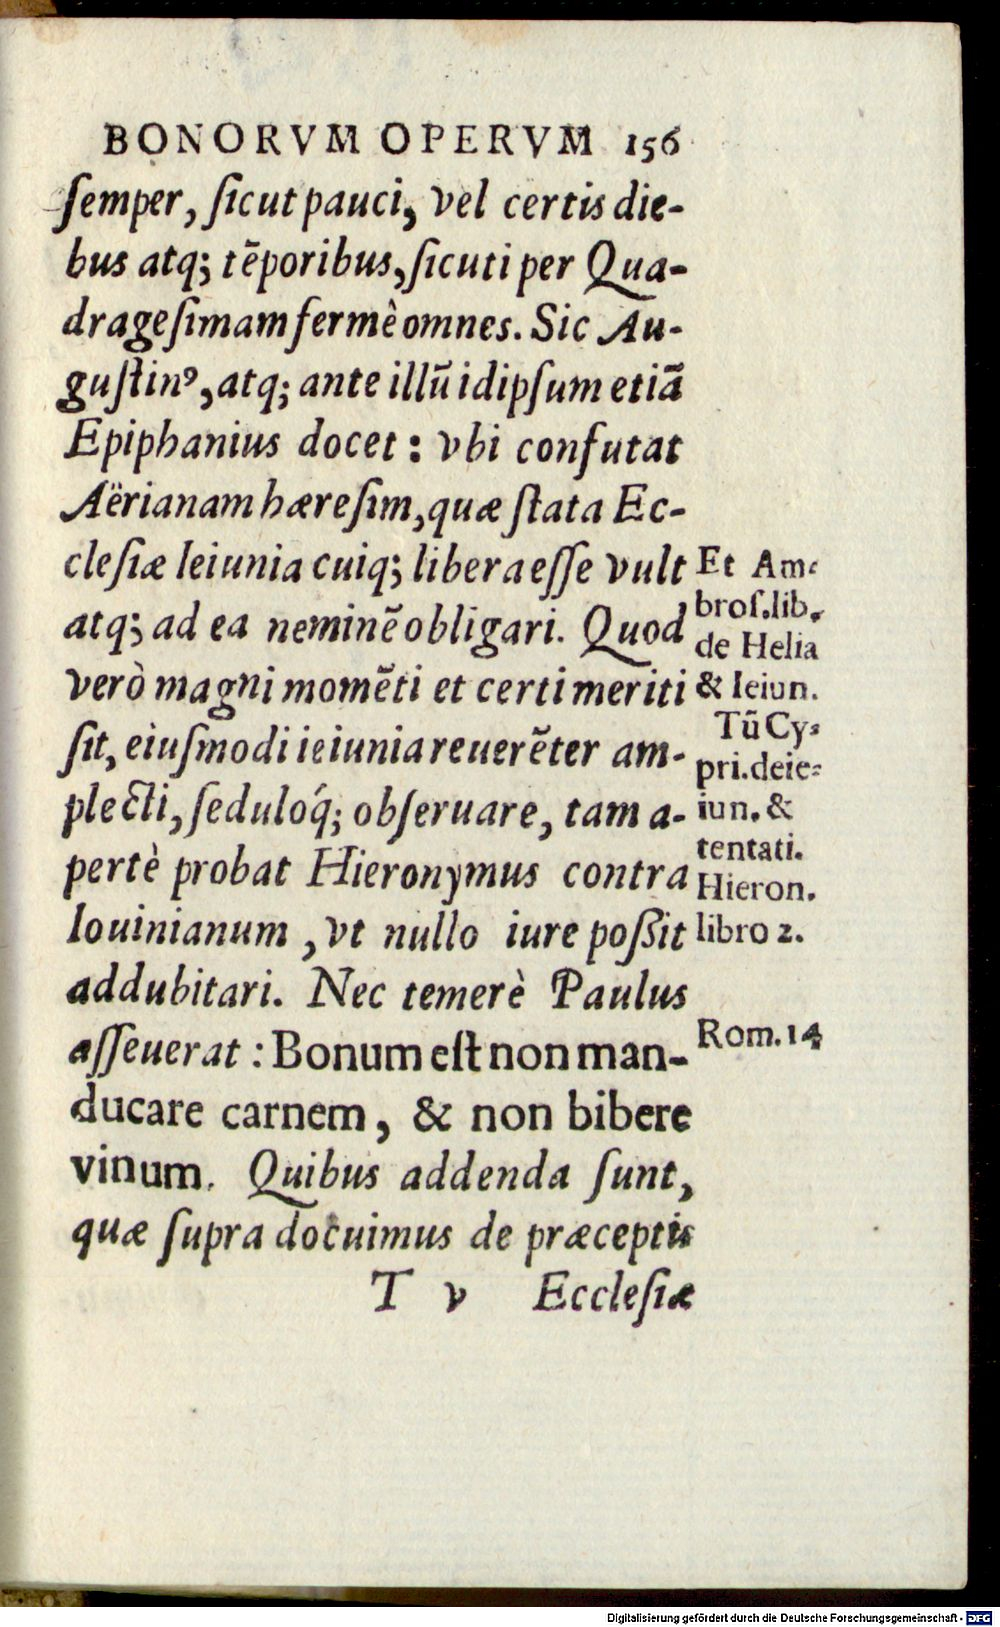 BONORVM OPERVM 156
ſemper, ſicut pauci, vel certis die-
bus atq; tēporibus, ſicuti per Qua-
drageſimam fermè omnes. Sic Au-
guſtinꝰ, atq; ante illū idipſum etiā
Epiphanius docet : vbi confutat
Aërianam hæreſim, quæ ſtata Ec-
cleſiæ Ieiunia cuiq; libera eſſe vult
atq; ad ea neminē obligari. Quod
verò magni momēti et certi meriti
ſit, eiuſmodi ieiunia reuerēter am-
plecti, ſeduloq́; obſeruare, tam a-
pertè probat Hieronymus contra
Iouinianum , vt nullo iure poßit
addubitari. Nec temerè Paulus
aſſeuerat : Bonum eſt non man-
ducare carnem, & non bibere
vinum. Quibus addenda ſunt,
quæ ſupra docuimus de præceptis
T v Eccleſiæ
Et Am-
broſ. lib.
de Helia
& Ieiun.
Tū Cy-
pri. de ie-
iun. &
tentati.
Hieron.
libro 2.
Rom. 14
Digitalisierung gefördert durch die Deutsche Forschungsgemeinschaft - DFG